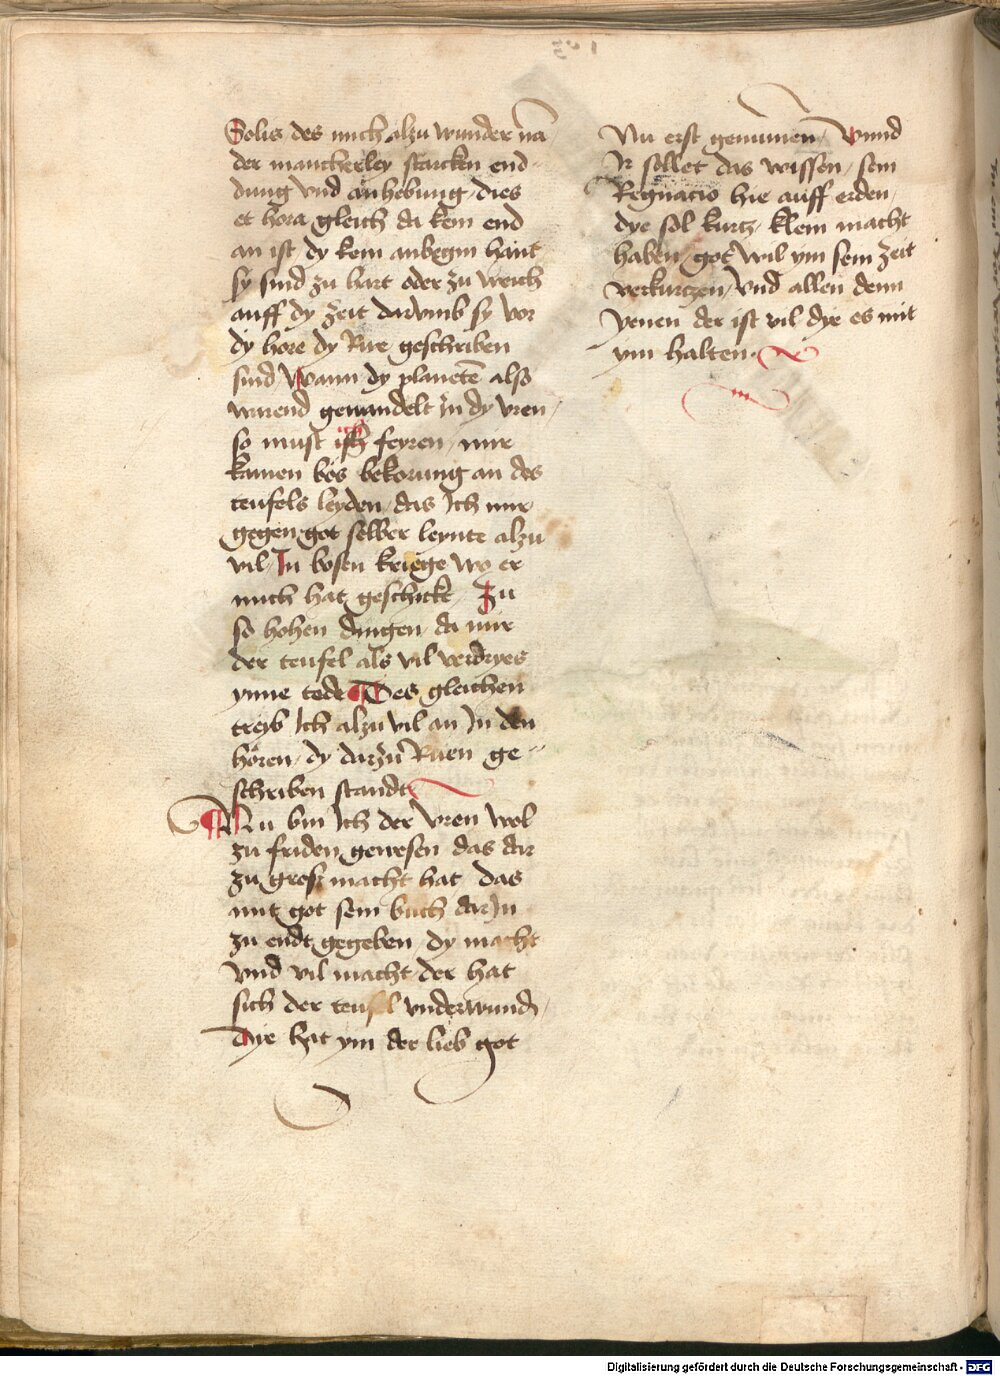 Solis des mich alzu wunder na
der mancherley starcken end
dung vnd anhebung, dies
et hora gleich da kein end
an ist, dy kein anbegin hant
sy sind zu hart oder zu weich
auff dy zeit darvmb sy vor
dy hore dy Rue geschriben
sind Wann dy planetē also
wurend gewandelt In dy vren,
so must ich feyren, mir
kamen bös bekorung an des
teufels leyden, das Ich mir
gegen got selber leynte alzu
vil, In bosen kriege wo er
mich hat geschickt, Zu
so hohen dingen, da mir
der teufel als vil verdryes
ynne tede Des gleichen
treib Ich alzu vil an In den
hören, dy darzu Ruen ge-
schriben standt
Nu bin Ich der vren wol
zu friden gewesen das dar
zu groß macht hat, das
mit got sein buch darIn
zu endt gegeben, dy macht
vnd vil macht der hat
sich der teufel vnderwundn,
Dye hat ym der lieb got
Nu erst genumen, Vnnd
Ir sollet das wissen, sein
Regnacio hie auff erden,
dye sol kurtz, klein macht
haben, got wil ym sein zeit
verkurczen, vnd allen denn
yenen der ist vil dye es mit
ym halten
Digitalisierung gefördert durch die Deutsche Forschungsgemeinschaft - DFG